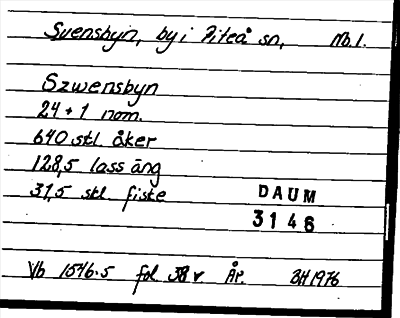 Svensbyn, by i Piteå sn, Nb.l.
Szwensbyn
24 + 1 nom.
640 stl. åker
128,5 lass äng
31,5 stl. fiske
DAUM
3146
Vb 1546:5 fol 58 v. ÅP. BH 1976